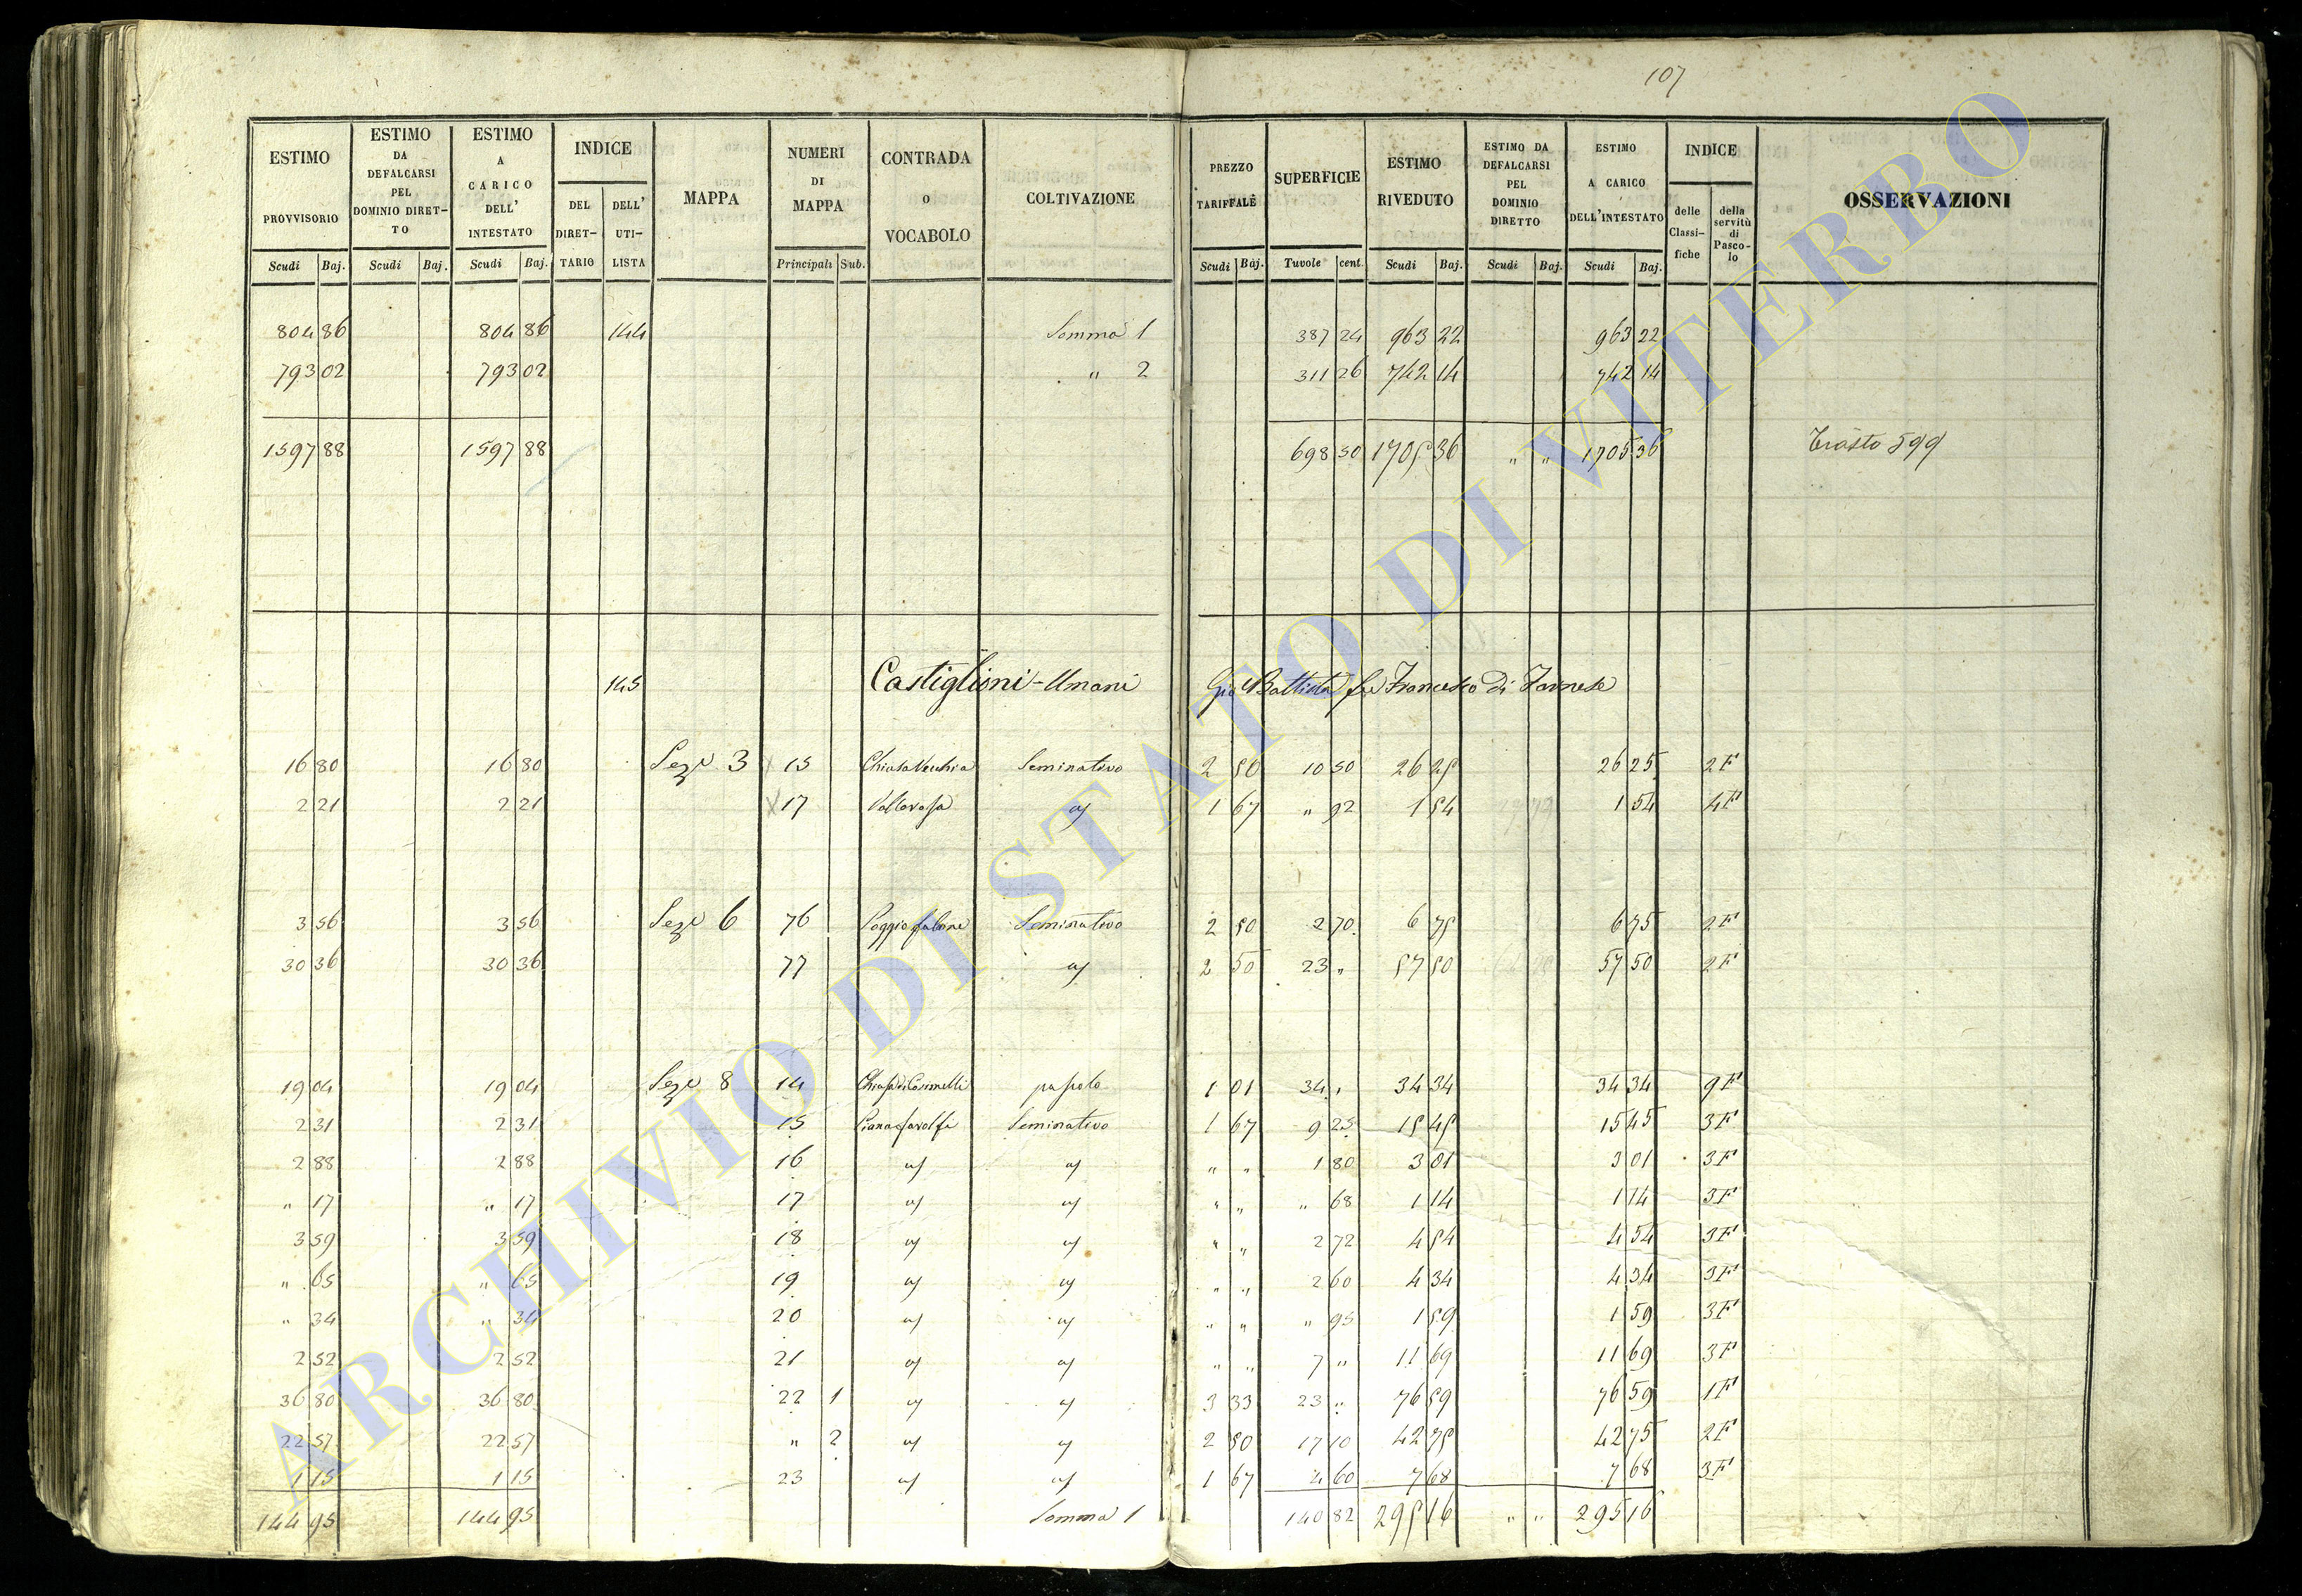 107
ESTIMO PROVVISORIO Scudi Baj.
ESTIMO DA DEFALCARSI PEL DOMINIO DIRET-TO Scudi Baj.
ESTIMO A CARICO DELL' INTESTATO Scudi Baj.
INDICE DEL DIRET-TARIO DELL' UTI-LISTA
MAPPA
NUMERI DI MAPPA Principali Sub.
CONTRADA o VOCABOLO
COLTIVAZIONE
PREZZO TARIFFALE Scudi Baj.
SUPERFICIE Tuvole cent.
ESTIMO RIVEDUTO Scudi Baj.
ESTIMO DA DEFALCARSI PEL DOMINIO DIRETTO Scudi Baj.
ESTIMO A CARICO DELL'INTESTATO Scudi Baj.
INDICE delle Classi-fiche della servitù di Pasco-lo
OSSERVAZIONI
804 86 804 86 144 Somma 1 387 24 963 22 963 22
793 02 793 02 " 2 311 26 742 14 742 14
1597 88 1597 88 698 50 1705 36 " " 1705 36 599
145 Castiglioni-Umani Gio Battista fu Francesco di Farnese
16 80 16 80 Seze 3 15 Chiusa Vecchia Seminativo 2 50 10 50 26 25 26 25 2 F
2 21 2 21 17 1 67 " 92 1 54 1 54 4 F
3 56 3 56 Seze 6 76 Poggio falcone Seminativo 2 50 2 70 6 75 6 75 2 F
30 36 30 36 77 2 50 23 " 57 50 57 50 2 F
19 04 19 04 Seze 8 14 pascolo 1 01 34 " 34 34 34 34 9 F
2 31 2 31 15 Seminativo 1 67 9 25 15 45 15 45 3 F
2 88 2 88 16 " " 1 80 3 01 3 01 3 F
" 17 " 17 17 " " " 68 1 14 1 14 3 F
3 59 3 59 18 " " 2 72 4 54 4 54 3 F
" 65 " 65 19 " " 2 60 4 34 4 34 3 F
" 34 " 34 20 " " " 95 1 59 1 59 3 F
2 52 2 52 21 " " 7 " 11 69 11 69 3 F
36 80 36 80 22 1 3 33 23 " 76 59 76 59 1 F
22 57 22 57 " 2 2 50 17 10 42 75 42 75 2 F
1 15 1 15 23 1 67 4 60 7 68 7 68 3 F
144 95 144 95 Somma 1 140 82 295 16 " " 295 16
ARCHIVIO DI STATO DI VITERBO